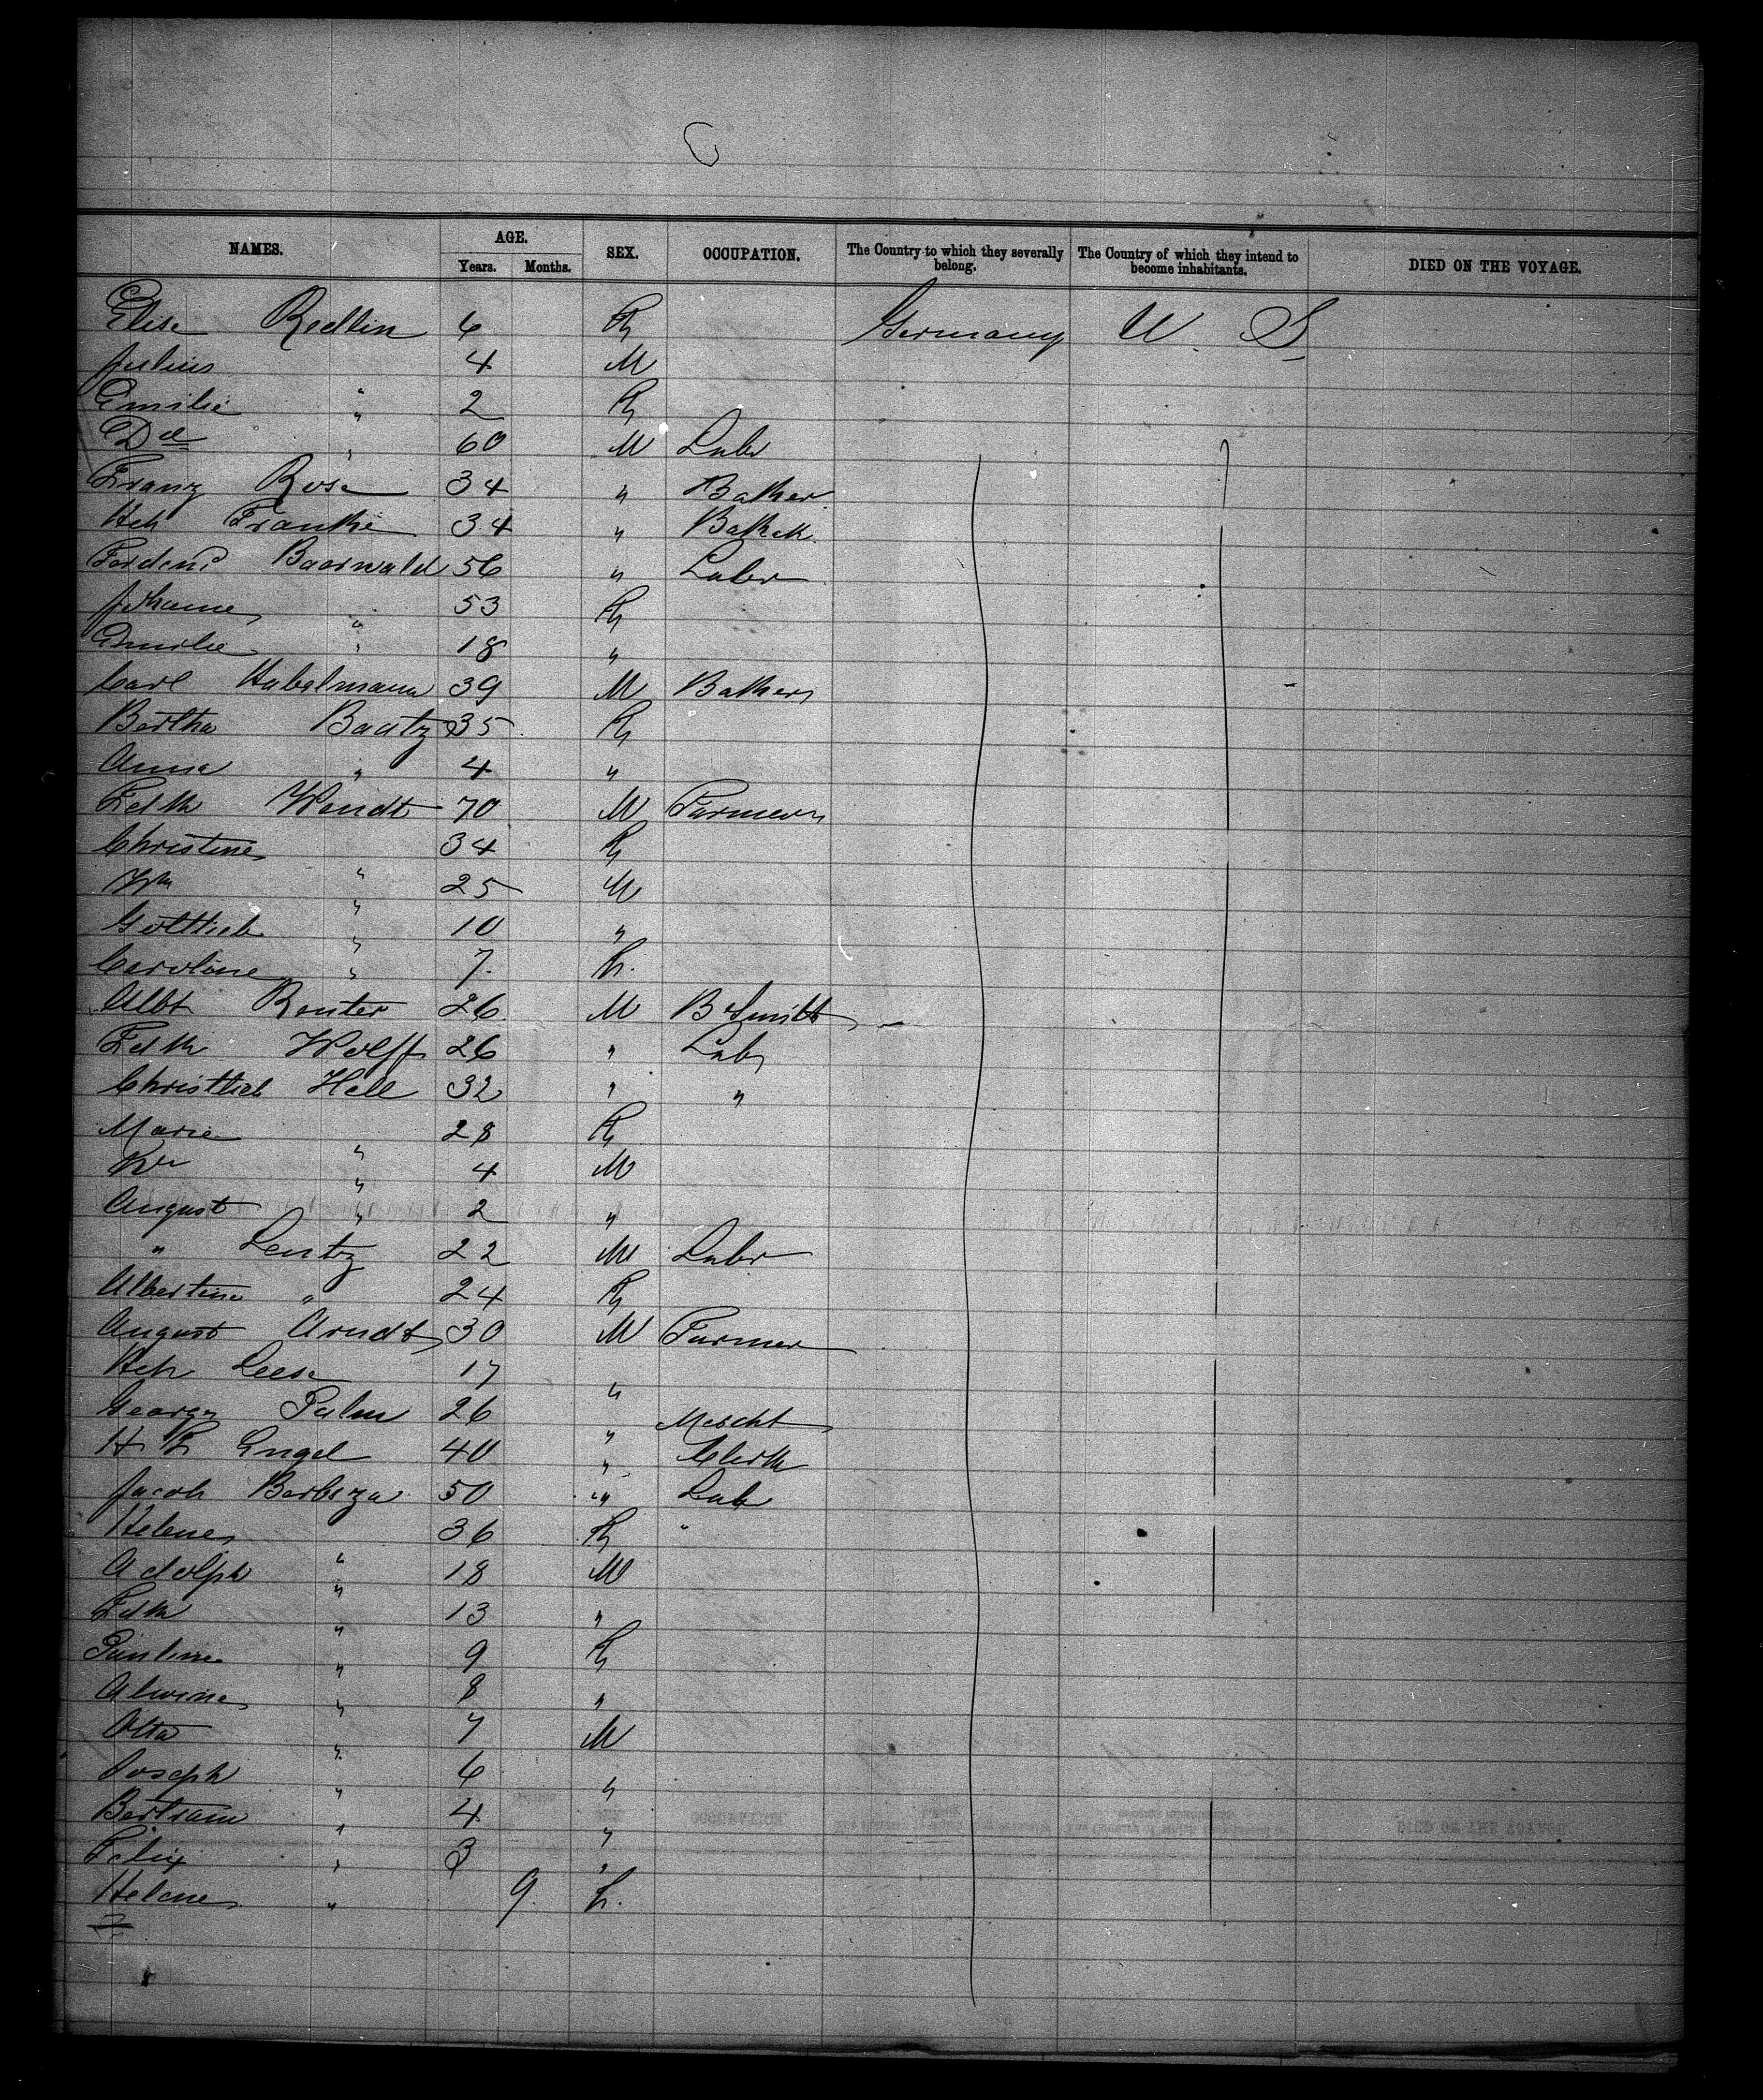 C
NAMES. AGE. SEX. OCCUPATION. The Country to which they severally belong, The Country of which they intend to become inhabitants. DIED ON THE VOYAGE.
Years. Months.
Elise Redlin 6 F Germany U. S.
Julius 4 M
Emilie " 2 F
Do " 60 M Labr
Franz Rose 34 " Baker
Hch Franke 34 "
Ferdind Baerwald 56 " Labr
Johanne " 53 F
Emilie " 18 "
Carl Habelmann 39 M Baker
Bertha Baatz 35 F
Anna " 4 "
Fdk Wendt 70 M Farmer
Christine " 34 F
Wm " 25 M
Gottlieb " 10 "
Caroline " 7 F.
Albt Renter 26 M B Smith
Fdk Wolff 26 " Labr
Christlieb Hell 32 " "
Marie " 28 F
" 4 M
August " 2 "
" Lentz 22 M Labr
Albertine " 24 F
August Arndt 30 M Farmer
Hch Leese 17 "
Georg Palm 26 " Mercht
H F Engel 40 " Clerk
Jacob Berbeza 50 " Lab
Helene " 36 F "
Adolph " 18 M
Fdk " 13 "
Pauline " 9 F
Alwine " 8 "
Otto " 7 M
Joseph " 6 "
Bertram " 4 "
Felix " 3 "
Helene " 9. F.